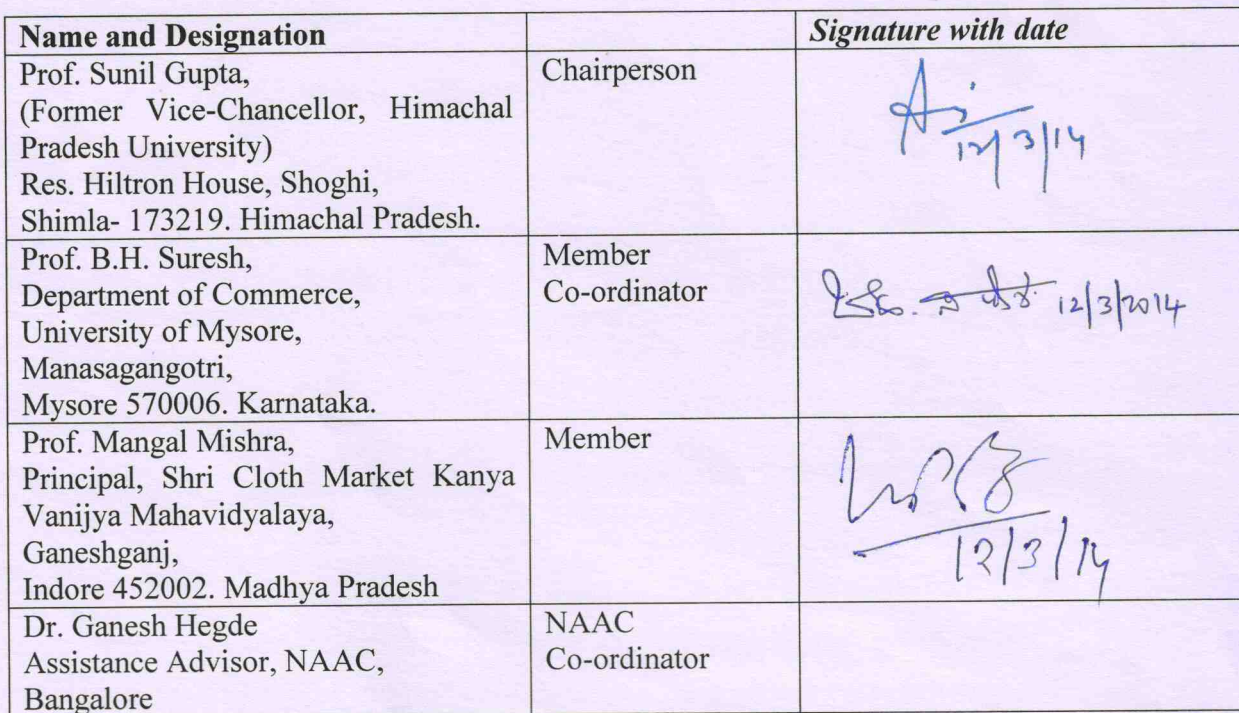 Name and Designation
Signature with date
Prof. Sunil Gupta,
(Former Vice-Chancellor, Himachal
Pradesh University)
Res. Hiltron House, Shoghi,
Shimla- 173219. Himachal Pradesh.
Chairperson
12/3/14
Prof. B.H. Suresh,
Department of Commerce,
University of Mysore,
Manasagangotri,
Mysore 570006. Karnataka.
Member
Co-ordinator
12/3/2014
Prof. Mangal Mishra,
Principal, Shri Cloth Market Kanya
Vanijya Mahavidyalaya,
Ganeshganj,
Indore 452002. Madhya Pradesh
Member
12/3/14
Dr. Ganesh Hegde
Assistance Advisor, NAAC,
Bangalore
NAAC
Co-ordinator